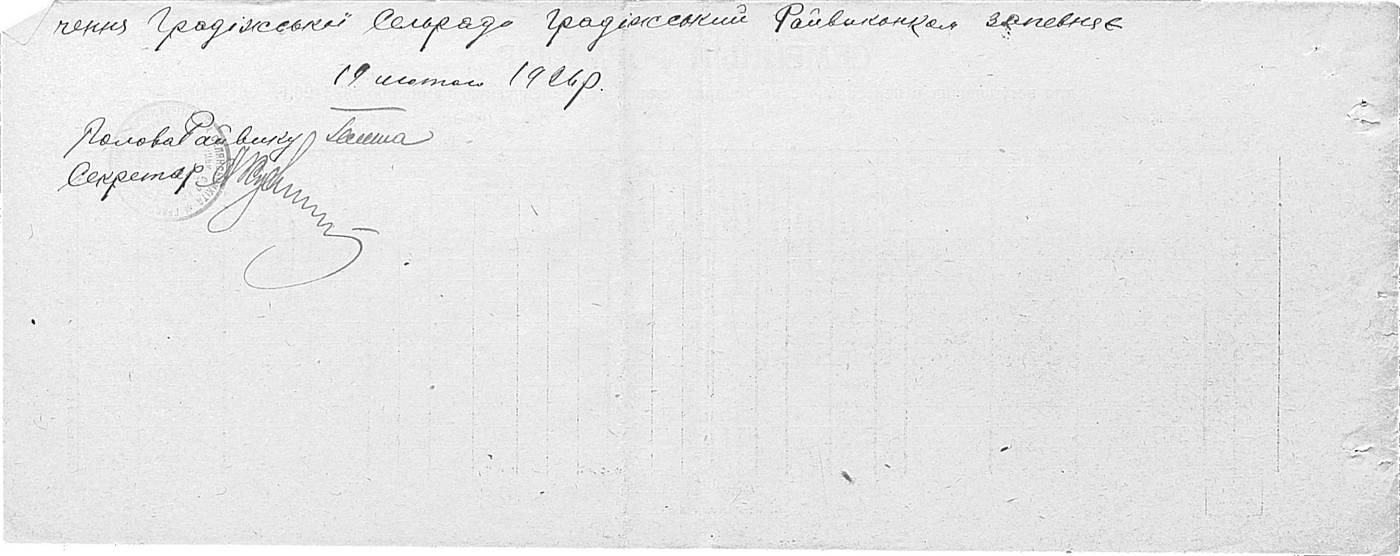 чення Градіжської Сельради Градіжський Райвиконком запевняє
19 лютого 1926р.
Голова Райвику
Секретар